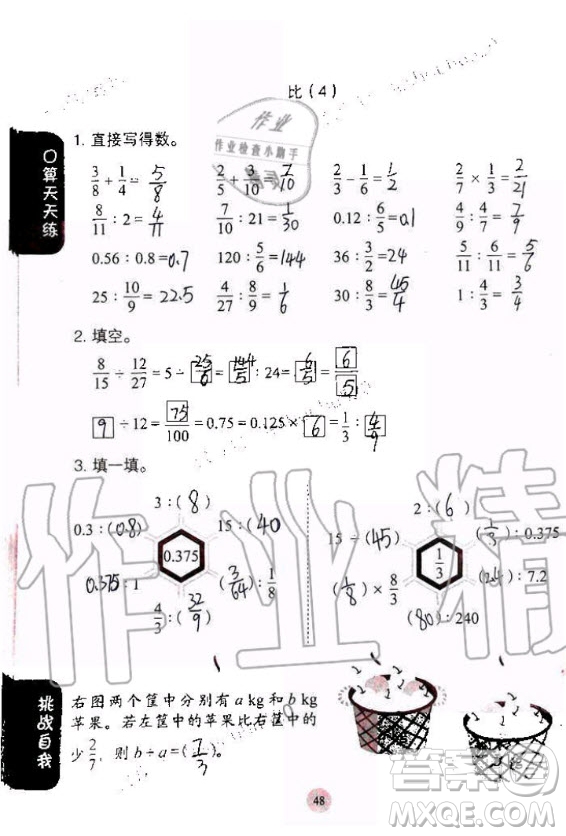 比（4）
作业
作业检查小助手
口算天天练
1. 直接写得数。
3/8 + 1/4 = 5/8　2/5 + 3/10 = 7/10　2/3 - 1/6 = 1/2　2/7 × 1/3 = 2/21
8/11 : 2 = 4/11　7/10 : 21 = 1/30　0.12 : 6/5 = 0.1　4/9 : 4/7 = 7/9
0.56 : 0.8 = 0.7　120 : 5/6 = 144　36 : 3/2 = 24　5/11 : 6/11 = 5/6
25 : 10/9 = 22.5　4/27 : 8/9 = 1/6　30 : 8/3 = 45/4　1 : 4/3 = 3/4
2. 填空。
8/15 ÷ 12/27 = 5 ÷ 25/6 = 144/5 : 24 = 6/5 = 6/5
9 ÷ 12 = 75/100 = 0.75 = 0.125 × 6 = 1/3 : 4/9
3. 填一填。
3 : ( 8 )　2 : ( 6 )
0.3 : (0.8)　15 : ( 40　15 ÷ (45)　(1/3) : 0.375
0.375　1/3
0.375 : 1　(3/64) : 1/8　(1/8) × 8/3　(2.4) : 7.2
4/3 : (32/9)　(80) : 240
挑战自我
右图两个筐中分别有 a kg 和 b kg
苹果。若左筐中的苹果比右筐中的
少 2/7，则 b ÷ a = ( 7/3 )。
48
作业精
答案圈
MXQE.COM